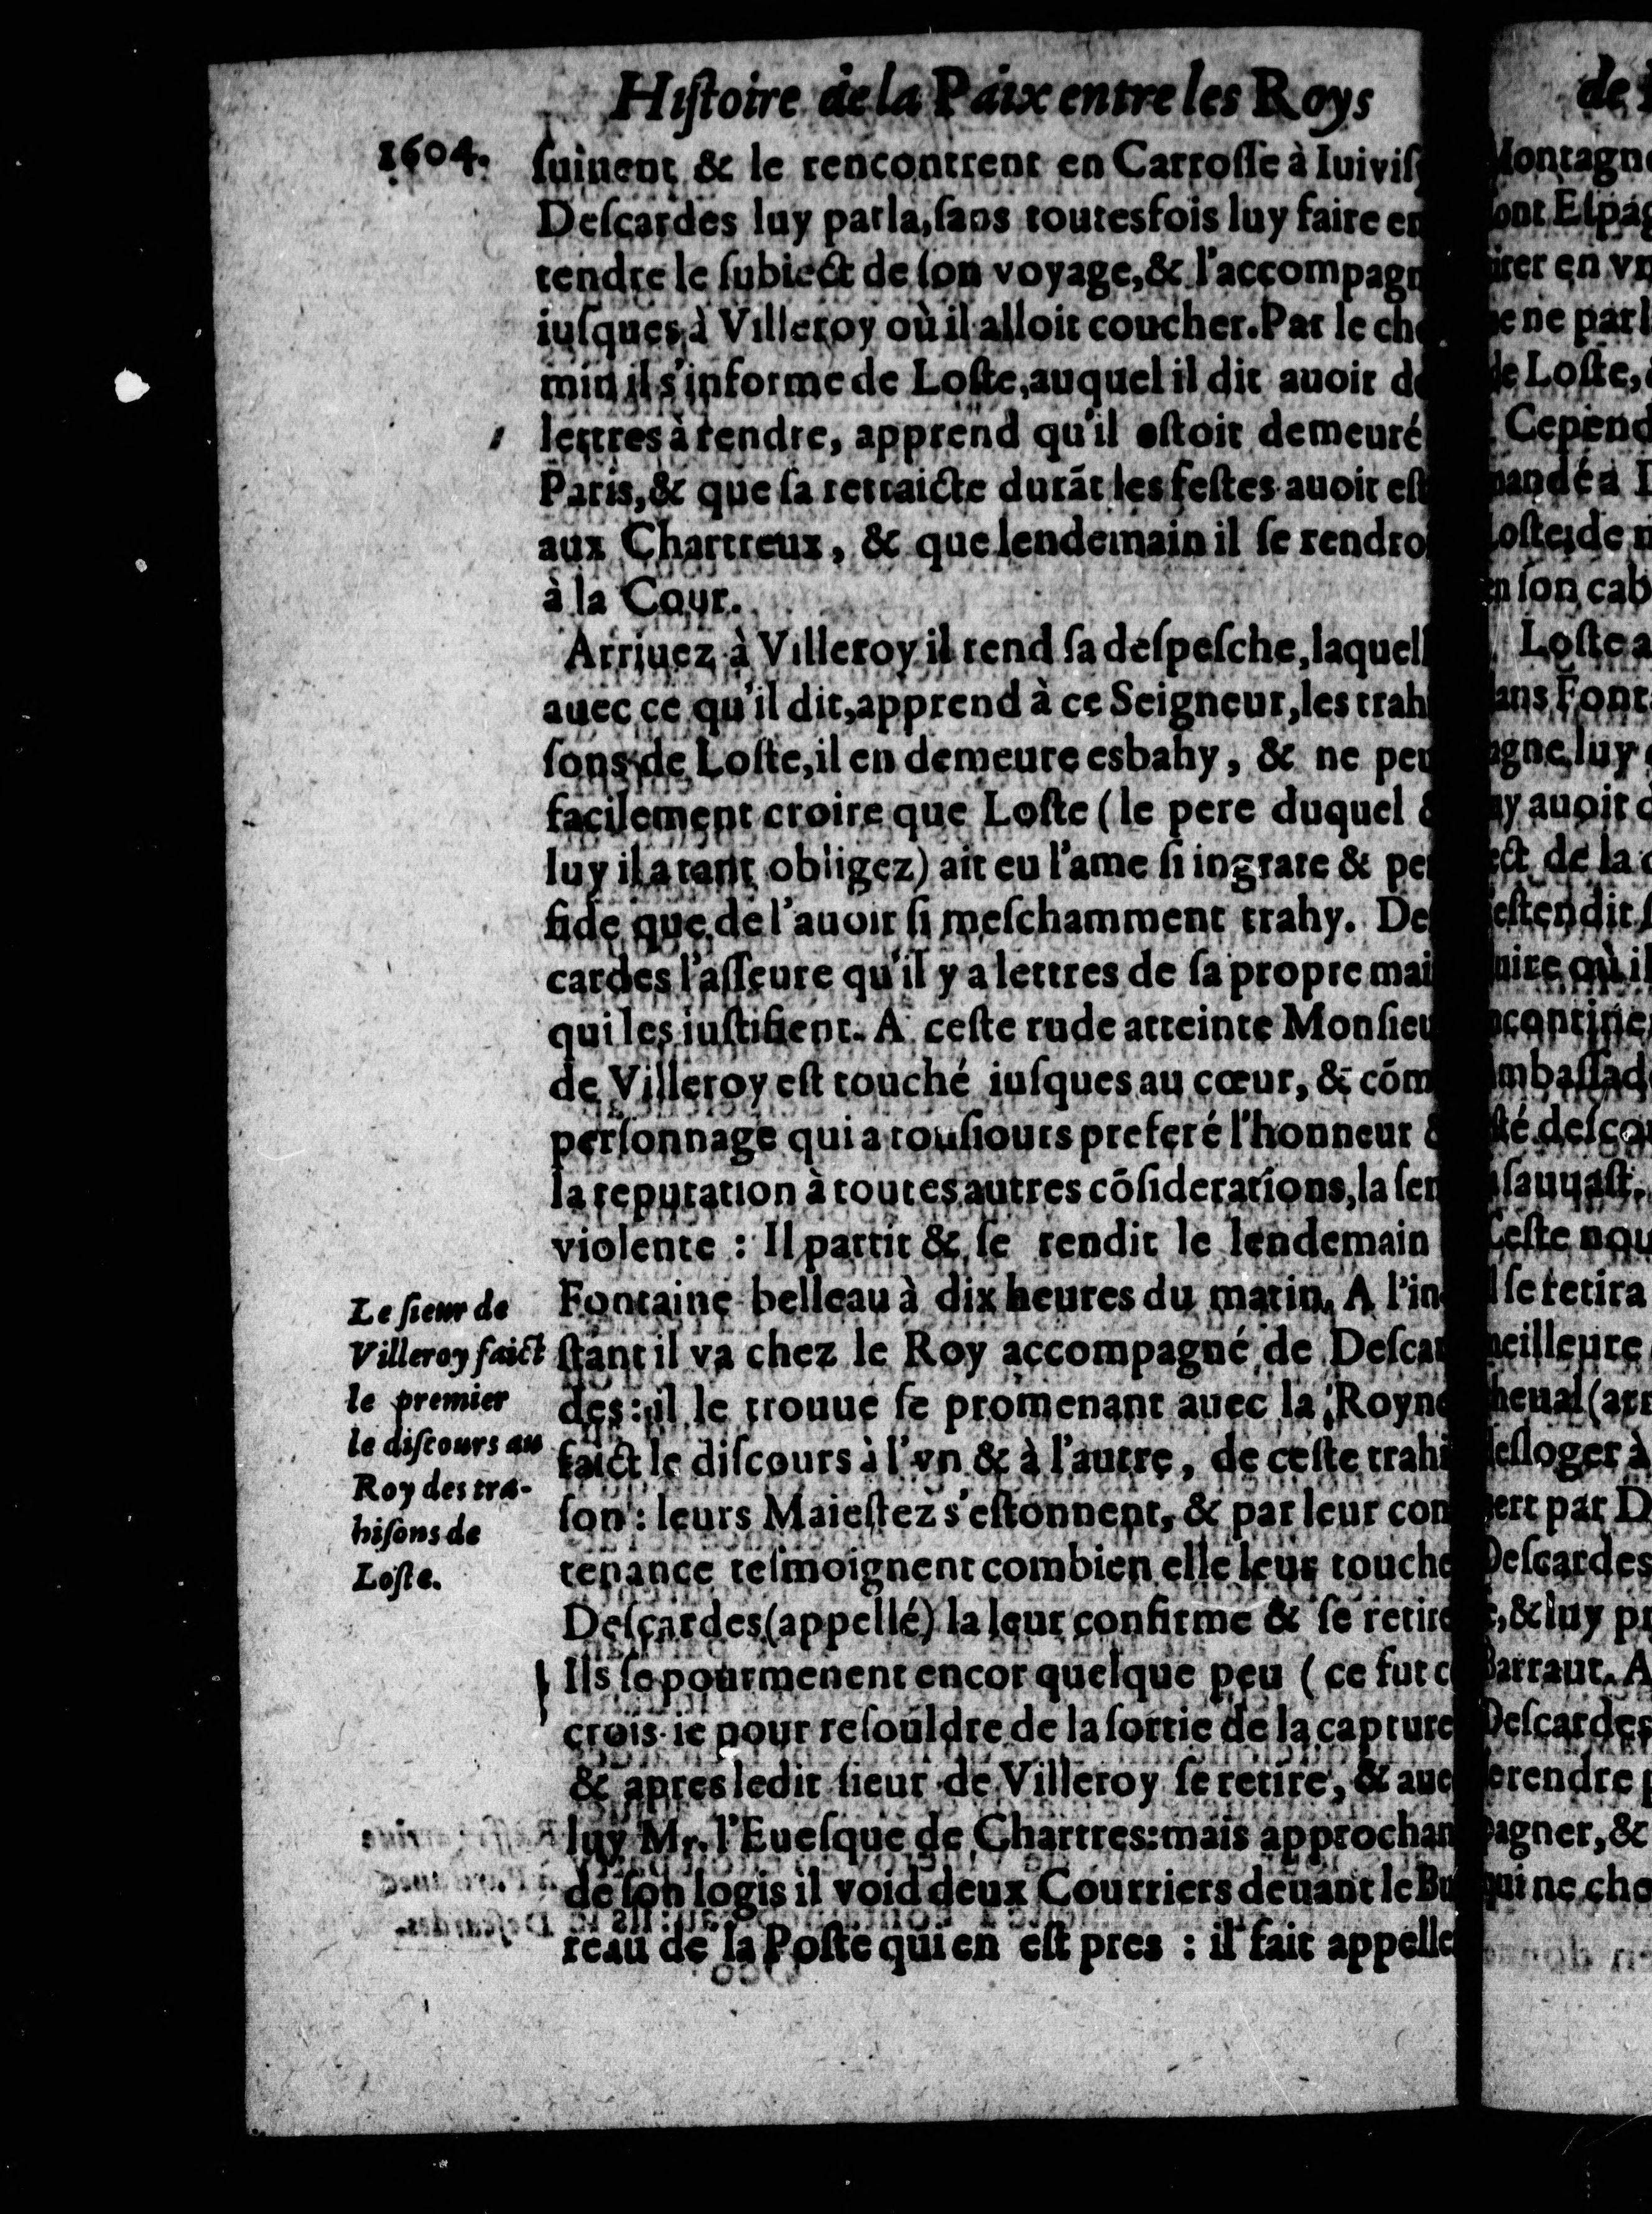 Hiſtoire de la Paix entre les Roys
1604.
ſuiuent & le rencontrent en Carroſſe à Iuiviſ
Deſcardes luy parla, ſans toutesfois luy faire en
tendre le ſubiect de ſon voyage, & l'accompagn
iuſques à Villeroy où il alloit coucher. Par le che
min il s'informe de Loſte, auquel il dit auoir de
lettres à rendre, apprend qu'il eſtoit demeuré
Paris, & que ſa retraicte durāt les feſtes auoit eſt
aux Chartreux, & que lendemain il ſe rendro
à la Cour.
Arriuez à Villeroy il rend ſa deſpeſche, laquell
auec ce qu'il dit, apprend à ce Seigneur, les trah
ſons de Loſte, il en demeure esbahy, & ne peu
facilement croire que Loſte (le pere duquel &
luy il a tant obligez) ait eu l'ame ſi ingrate & per
fide que de l'auoir ſi meſchamment trahy. De
cardes l'aſſeure qu'il y a lettres de ſa propre mai
qui les iuſtifient. A ceſte rude atteinte Monſieu
de Villeroy eſt touché iuſques au cœur, & cōm
perſonnage qui a touſiours preferé l'honneur &
la reputation à toutes autres cōſiderations, la ſen
violente : Il partit & ſe rendit le lendemain
Fontaine belleau à dix heures du matin. A l'in-
ſtant il va chez le Roy accompagné de Deſcar
des: il le trouue ſe promenant auec la Royne
faict le diſcours à l'vn & à l'autre, de ceſte trahi
ſon : leurs Maieſtez s'eſtonnent, & par leur con
tenance teſmoignent combien elle leur touche
Deſcardes (appellé) la leur confirme & ſe retire
Ils ſe pourmenent encor quelque peu ( ce fut c
crois-ie pour reſouldre de la ſortie de la capture
& apres ledit ſieur de Villeroy ſe retire, & aue
luy Mr. l'Eueſque de Chartres: mais approchan
de ſon logis il void deux Courriers deuant le Bu
reau de la Poſte qui en eſt pres : il fait appelle
Le ſieur de
Villeroy faict
le premier
le diſcours au
Roy des tra-
hiſons de
Loſte.
de
Montagne
ont Eſpag
irer en vn
e ne parl
de Loſte,
Cepend
mandé a
Loſte, de
en ſon cab
Loſte a
ans Font
agne, luy
uy auoit
ect de la
eſtendit
uire où il
ncontine
mbaſſad
ſté deſco
ſauuaſt.
Ceſte nou
il ſe retira
meilleure
heual (arr
deſloger à
ert par D
Deſcardes
, & luy pr
Barraut. A
Deſcardes
ſe rendre
pagner, &
qui ne cho